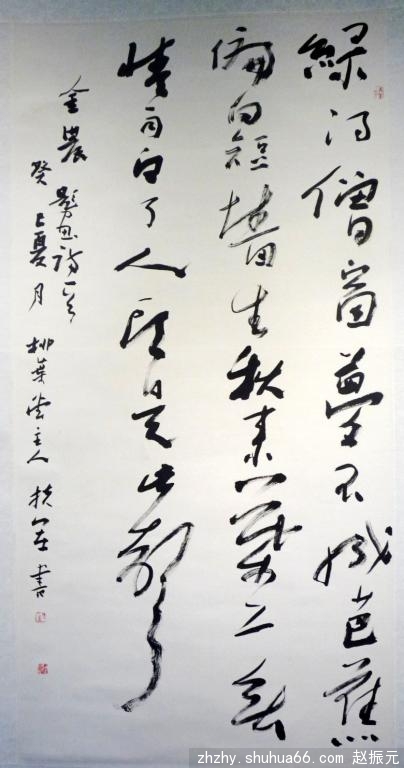 綠得僧窗夢不成芭蕉
偏向短墻生秋來葉上無
情雨白了人頭是此聲
金農題畫詩一首
癸巳夏月 柳葉堂主人 書
zhzhy.shuhua66.com 赵振元